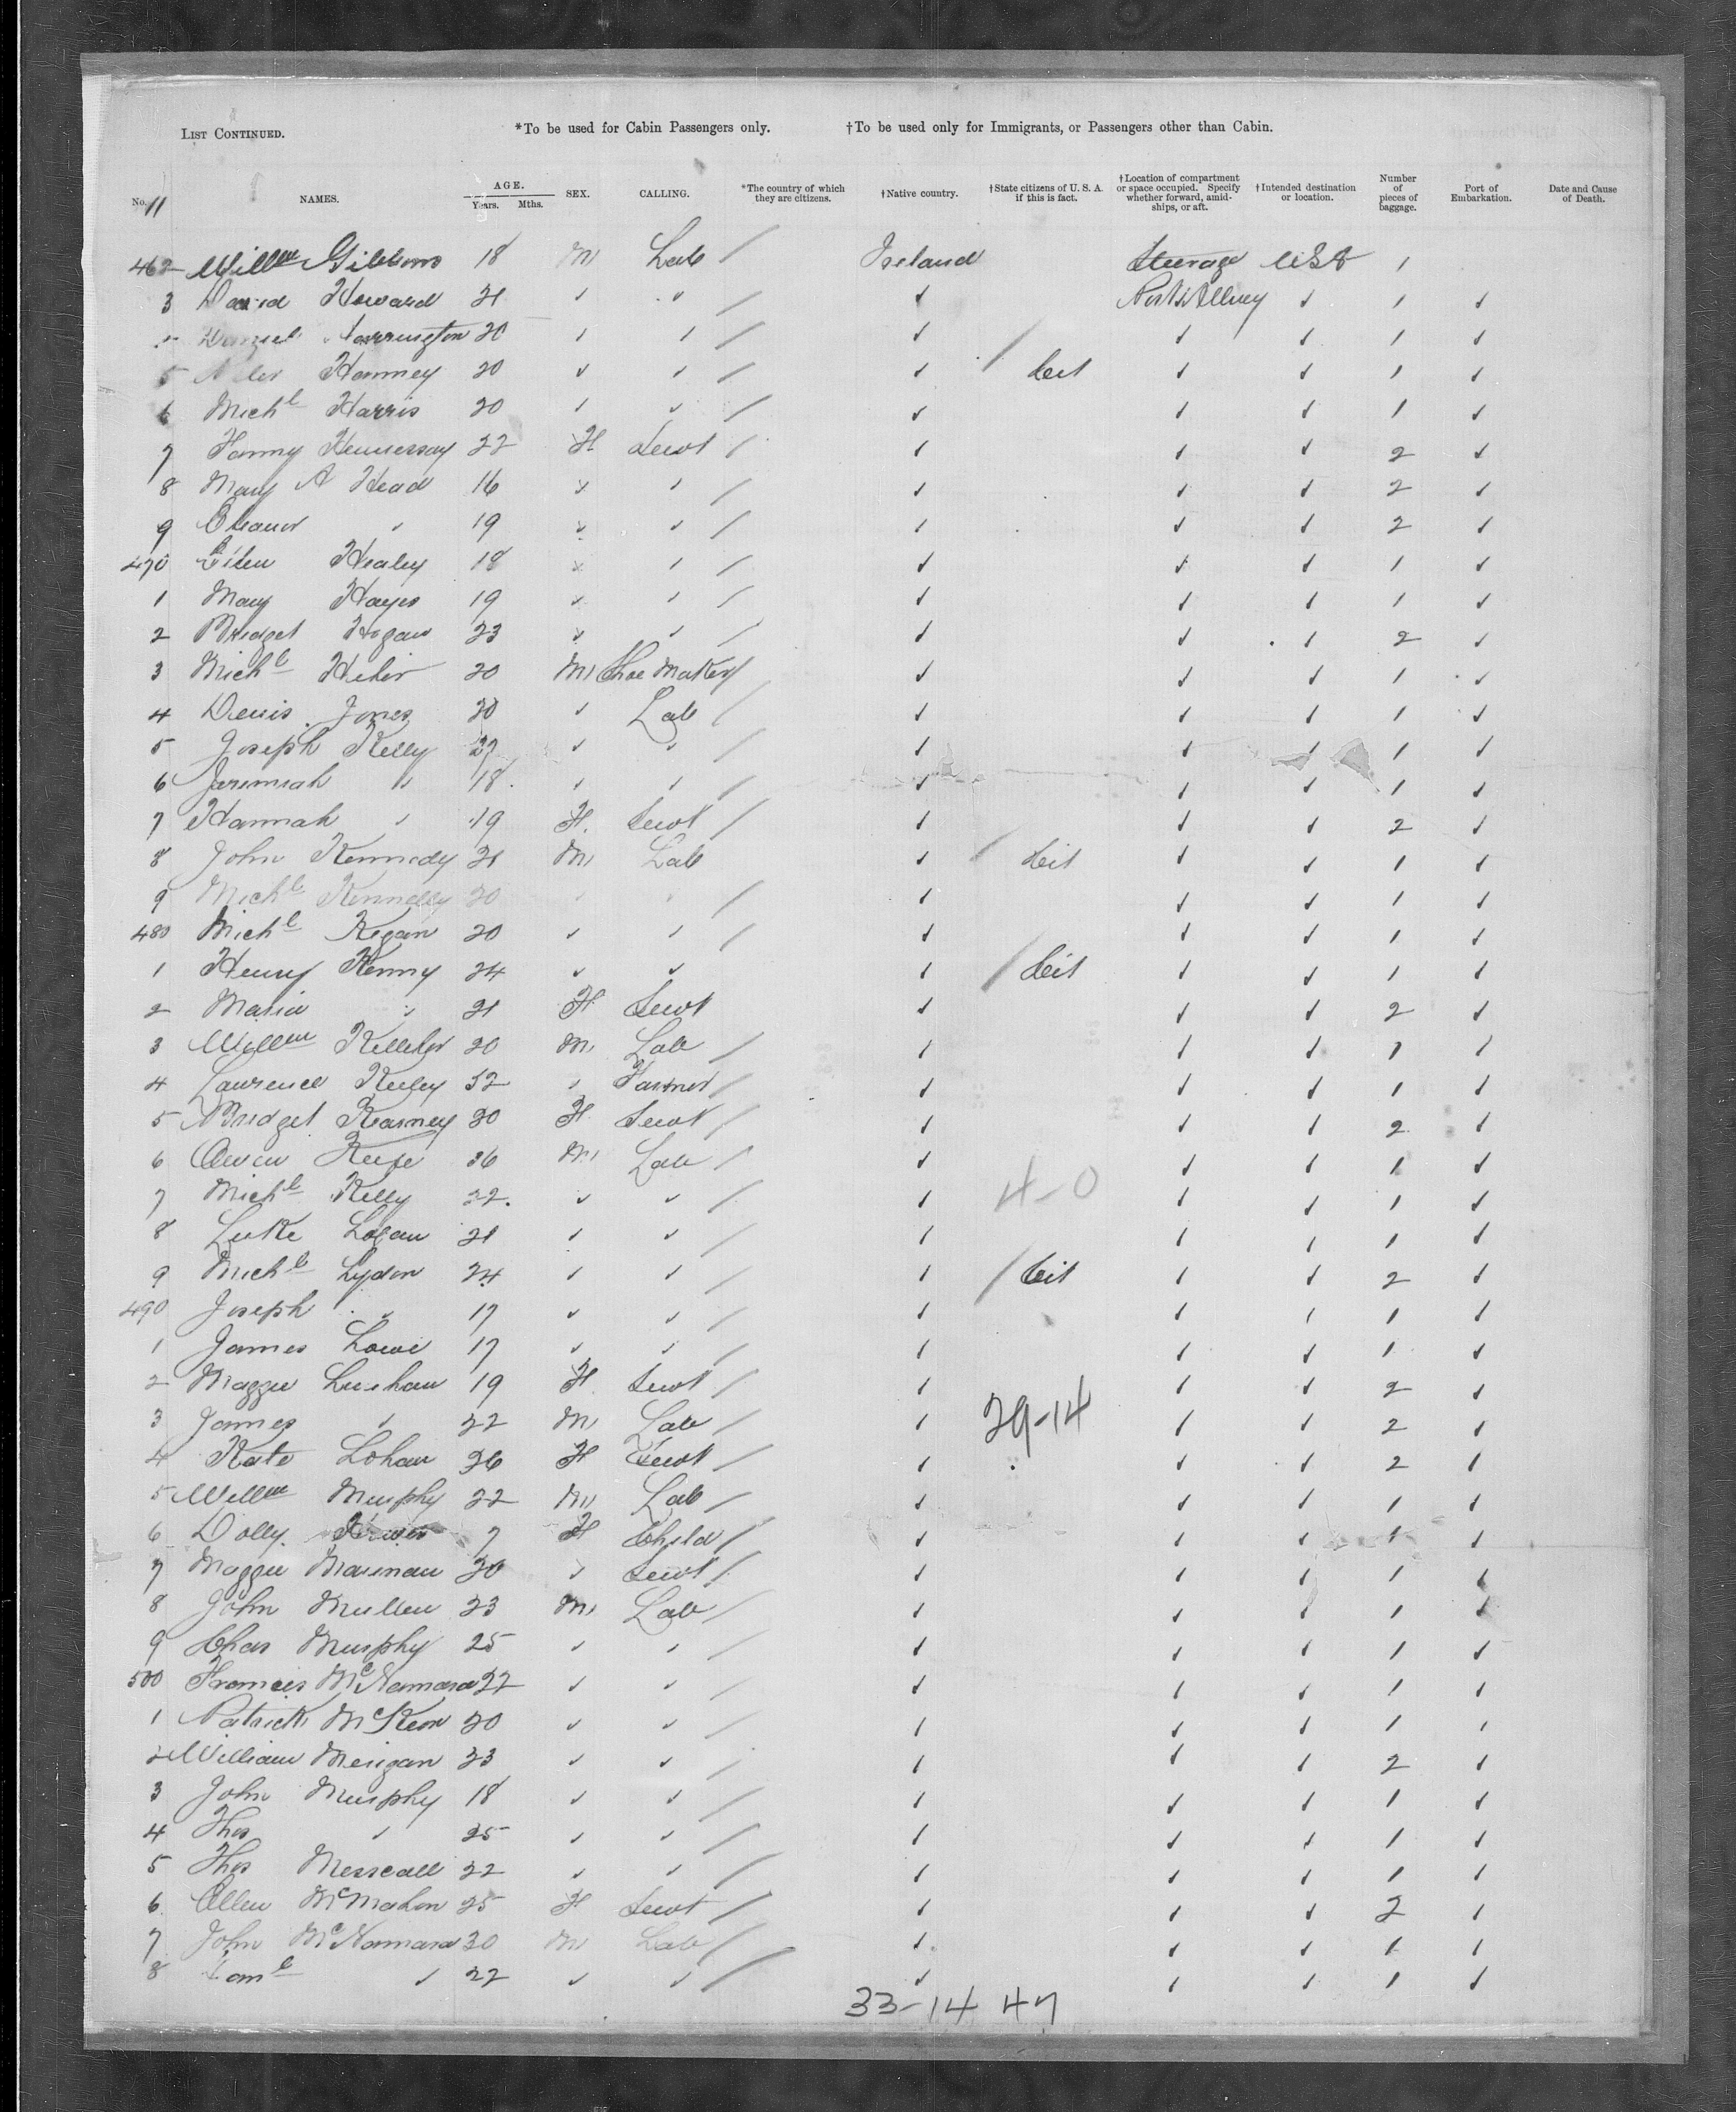 LIST CONTINUED. *To be used for Cabin Passengers only. †To be used only for Immigrants, or Passengers other than Cabin.
No. 11 NAMES. AGE. Years. Mths. SEX. CALLING. *The country of which they are citizens. †Native country. †State citizens of U. S. A. if this is fact. †Location of compartment or space occupied. Specify whether forward, amidships, or aft. †Intended destination or location. Number of pieces of baggage. Port of Embarkation. Date and Cause of Death.
462 Willm Gibbons 18 M Lab / Ireland Steerage USA 1
3 David Howard 21 ✓ ✓ / ✓ ✓ 1 ✓
Harrington 20 ✓ ✓ / ✓ ✓ ✓ 1 ✓
5 Hanney 20 ✓ ✓ / ✓ / Cit ✓ ✓ 1 ✓
6 Michl Harris 20 ✓ ✓ / ✓ ✓ ✓ 1 ✓
7 Fanny Hennessay 22 F Servt / ✓ ✓ ✓ 2 ✓
8 Mary A Head 16 ✓ ✓ / ✓ ✓ ✓ 2 ✓
9 Eleanor ✓ 19 ✓ ✓ / ✓ ✓ ✓ 2 ✓
470 Ellen Healey 18 ✓ ✓ / ✓ ✓ ✓ 1 ✓
1 Mary Hayes 19 ✓ ✓ / ✓ ✓ ✓ 1 ✓
2 Bridget Hogan 23 ✓ ✓ / ✓ ✓ ✓ 2 ✓
3 Michl 20 M Shoe Maker / ✓ ✓ ✓ 1 ✓
4 Denis Jones 20 ✓ Lab / ✓ ✓ ✓ 1 ✓
5 Joseph Kelly 27 ✓ ✓ / ✓ ✓ ✓ 1 ✓
6 Jeremiah " 18 ✓ ✓ / ✓ ✓ ✓ 1 ✓
7 Hannah ✓ 19 F. Servt / ✓ ✓ ✓ 2 ✓
8 John Kennedy 21 M Lab ✓ / Cit ✓ ✓ 1 ✓
9 Michl Kennelly 20 ✓ ✓ / ✓ ✓ ✓ 1 ✓
480 Michl Kegan 20 ✓ ✓ / ✓ ✓ ✓ 1 ✓
1 Henry Kenny 24 ✓ ✓ ✓ / Cit ✓ ✓ 1 ✓
2 Maria " 21 F Servt ✓ ✓ ✓ 2 ✓
3 Willm Kelleher 20 M Lab / ✓ ✓ ✓ 1 ✓
4 Lawrence Keeley 32 ✓ Farmer / ✓ ✓ ✓ 1 ✓
5 Bridget Kearney 20 F Servt / ✓ ✓ ✓ 2 ✓
6 Owen Keefe 26 M Lab / ✓ ✓ ✓ 1 ✓
4-0
7 Michl Kelly 22. ✓ ✓ / ✓ ✓ ✓ 1 ✓
8 Luke Logan 21 ✓ ✓ / ✓ ✓ ✓ 1 ✓
9 Michl Lydon 24 ✓ ✓ / ✓ / Cit ✓ ✓ 2 ✓
490 Joseph " 17 ✓ ✓ / ✓ ✓ ✓ 1 ✓
1 James Lowe 17 ✓ ✓ / ✓ ✓ ✓ 1 ✓
2 Maggie Luchan 19 F. Servt / ✓ ✓ ✓ 2 ✓
3 James ✓ 22 M Lab / ✓ 29-14 ✓ ✓ 2 ✓
4 Kate Lohan 26 F Servt / ✓ ✓ ✓ 2 ✓
5 Willm Murphy 22 M Lab / ✓ ✓ ✓ 1 ✓
6 Dolly 7 F Child / ✓ ✓ ✓ 1 ✓
7 Maggie 20 ✓ Servt / ✓ ✓ ✓ 1 ✓
8 John Mullen 23 M Lab / ✓ ✓ ✓ 1 ✓
9 Chas Murphy 25 ✓ ✓ / ✓ ✓ ✓ 1 ✓
500 Francis McNamara 22 ✓ ✓ / ✓ ✓ ✓ 1 ✓
1 Patrick McKeon 20 ✓ ✓ / ✓ ✓ ✓ 1 ✓
2 William Merigan 23 ✓ ✓ / ✓ ✓ ✓ 2 ✓
3 John Murphy 18 ✓ ✓ / ✓ ✓ ✓ 1 ✓
4 Thos ✓ 25 ✓ ✓ / ✓ ✓ ✓ 1 ✓
5 Thos Messcall 22 ✓ ✓ / ✓ ✓ ✓ 1 ✓
6 Ellen McMahon 25 F Servt / ✓ ✓ ✓ 2 ✓
7 John McNamara 20 M Lab / ✓ ✓ ✓ 1 ✓
8 ✓ 22 ✓ ✓ / ✓ ✓ ✓ 1 ✓
33-14 47